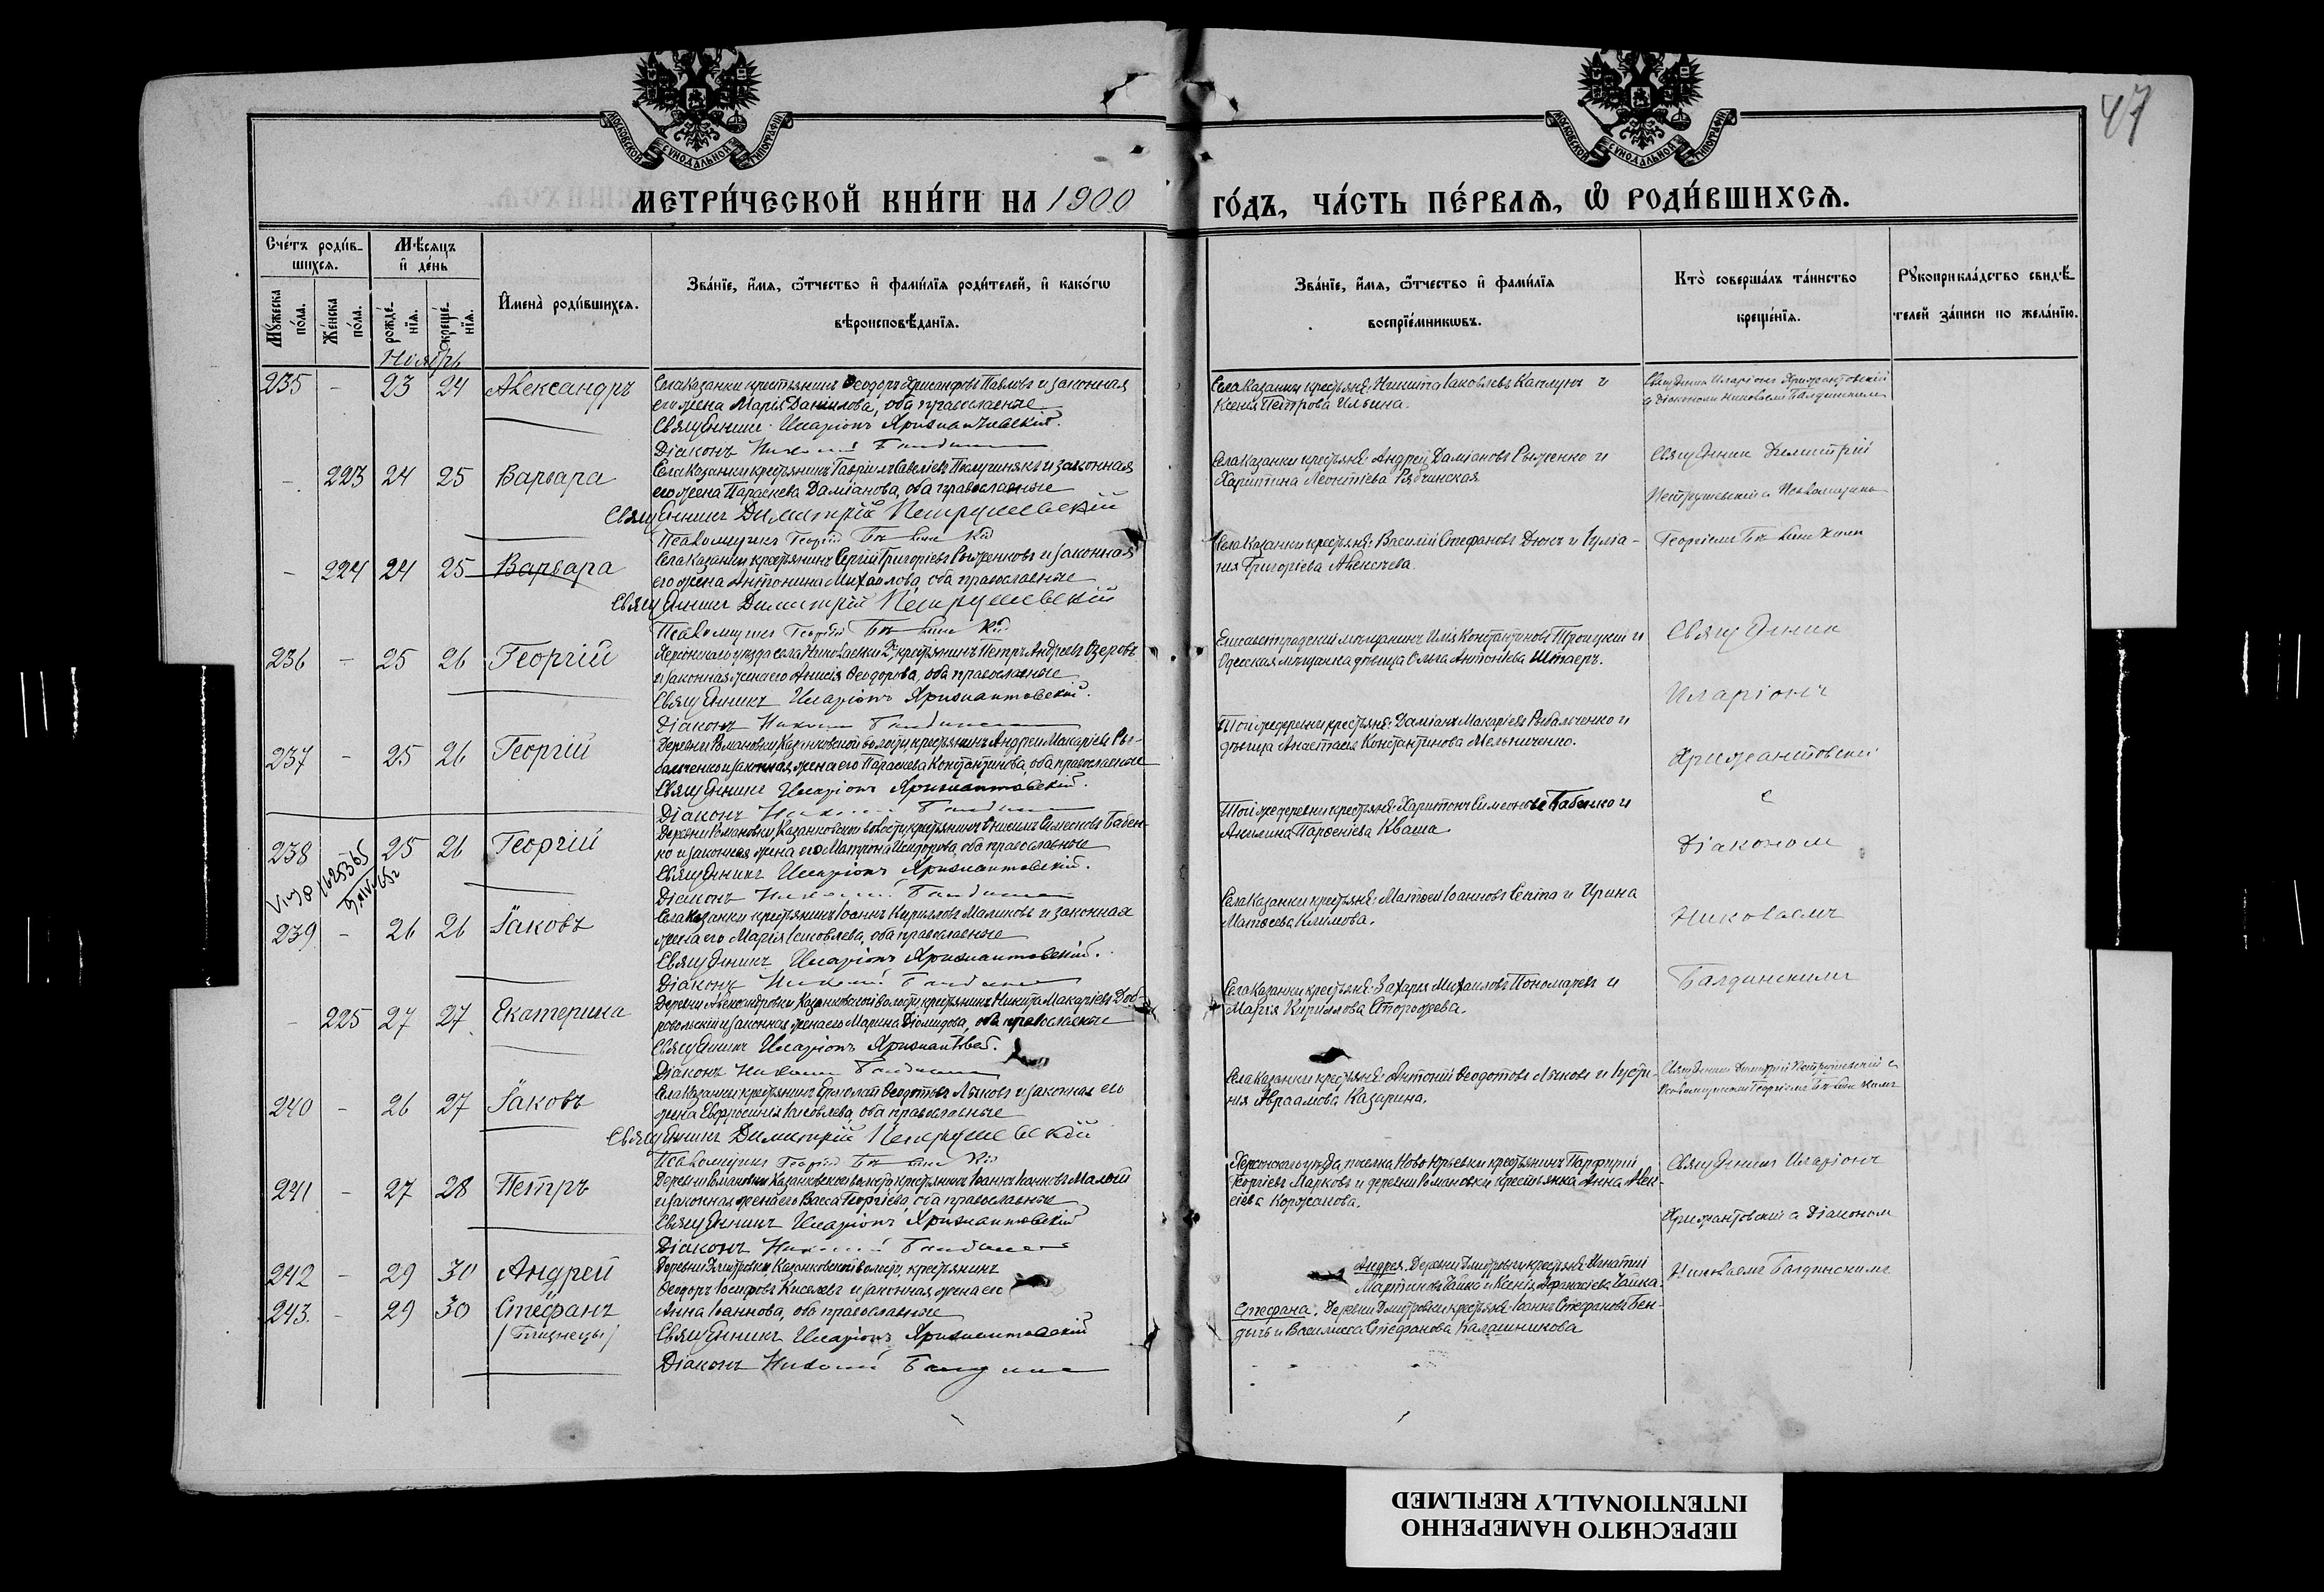 47
МОСКОВСКОЙ СѴНОДАЛЬНОЙ ТИПОГРАФІИ
МОСКОВСКОЙ СѴНОДАЛЬНОЙ ТИПОГРАФІИ
МЕТРИ́ЧЕСКОЙ КНИ́ГИ НА 1900
ГО́ДЪ, ЧА́СТЬ ПЕ́РВАѦ, Ѡ҆ РОДИ́ВШИХСѦ.
Сче́тъ роди́в-
шихсѧ.
Мѣ́сѧцъ
и҆ де́нь
Мꙋ́жеска
по́ла.
Же́нска
по́ла.
рожде́-
нїѧ.
креще́-
нїѧ.
И҆мена̀ роди́вшихсѧ.
Зва́нїе, и҆́мѧ, ѻ҆́тчество и҆ фами́лїѧ роди́телей, и҆ како́гѡ
вѣроисповѣ́данїѧ.
Зва́нїе, и҆́мѧ, ѻ҆́тчество и҆ фами́лїѧ
воспрїе́мникѡвъ.
Кто̀ соверша́лъ та́инство
креще́нїѧ.
Рꙋкоприкла́дство свидѣ́-
телей за́писи по жела́нїю.
Ноябрь
235 - 23 24 Александръ
Села Казанки крестьянинъ Ѳеодоръ Хрисанфовъ Павловъ и законная
его жена Марія Даніилова, оба православные
Священникъ Иларіонъ Хрисантовскій.
Діаконъ
Села Казанки крестьяне: Никита Іаковлевъ Каплунъ и
Ксенія Петрова Ильина.
Священникъ Иларіонъ Хрисантовскій
съ діакономъ Николаемъ Балдинскимъ
- 223 24 25 Варвара
Села Казанки крестьянинъ Гавріилъ Савеліевъ и законная
его жена Параскева Даміанова, оба православные
Священникъ Димитрій Петрушевскій
Псаломщикъ Георгій
Села Казанки крестьяне: Андрей Даміановъ Рыженко и
Харитина Леонтіева Рябчинская
Священник Димитрій
Петрушевскій съ Псаломщикомъ
- 224 24 25 Варвара
Села Казанки крестьянинъ Сергій Григоріевъ Рыженковъ и законная
его жена Антонина Михаилова, оба православные
Священникъ Димитрій Петрушевскій
Псаломщикъ Георгій
Села Казанки крестьяне: Василій Стефановъ Дюкъ и Іуліа-
нія Григоріева Алексеева.
Георгіемъ
236 - 25 26 Георгій
Херсонскаго уѣзда села Николаевки 2й, крестьянинъ Петръ Андреевъ Озеровъ
и законная жена его Анисія Ѳеодорова, оба православные
Священникъ Иларіонъ Хрисантовскій.
Діаконъ
Елисаветградскій мѣщанинъ Илія Константиновъ Троицкій и
Одесская мѣщанка дѣвица Ольга Антоніева Штаеръ.
Священник
Иларіонъ
237 - 25 26 Георгій
Деревни Романовки, Казанковской волости, крестьянинъ Андрей Макаріевъ Ры-
бальченко и законная жена его Параскева Константинова, оба православные
Священникъ Иларіонъ Хрисантовскій.
Діаконъ
Той же деревни крестьяне: Даміанъ Макаріевъ Рыбальченко и
дѣвица Анастасія Константинова Мельниченко.
Хрисантовскій
с
238 - 25 26 Георгій
1625365
Деревни Романовки, Казанковской волости, крестьянинъ Онисимъ Симеоновъ Бабен-
ко и законная жена его Матрона Исидорова, оба православные
Священникъ Иларіонъ Хрисантовскій.
Діаконъ
Той же деревни крестьяне: Харитонъ Симеоновъ Бабенко и
Акилина Парѳеніева Кваша.
Діакономъ
239 - 26 26 Іаковъ
Села Казанки крестьянинъ Іоаннъ Кирилловъ Маликовъ и законная
жена его Марія Іаковлева, оба православные
Священникъ Иларіонъ Хрисантовскій.
Діаконъ
Села Казанки крестьяне: Матѳей Іоанновъ и Ирина
Матѳеева Климова.
Николаемъ
- 225 27 27 Екатерина
Деревни Александровки, Казанковской волости, крестьянинъ Никита Макаріевъ Доб-
ровольскій и законная жена его Марина Діомидова, оба православные
Священникъ Иларіонъ
Діаконъ
Села Казанки крестьяне: Захарія Михаиловъ Пономаревъ и
Марія Кириллова Сторожева.
Балдинскимъ
240 - 26 27 Іаковъ
Села Казанки крестьянинъ Ермолай Ѳеодотовъ Лыковъ и законная его
жена Евфросинія Іаковлева, оба православные
Священникъ Димитрій Петрушевскій
Псаломщикъ Георгій
Села Казанки крестьяне: Антоній Ѳеодотовъ Лыковъ и Іусти-
нія Авраамова Казарина.
Священникъ Димитрій Петрушевскій съ
Псаломщикомъ Георгіемъ
241 - 27 28 Петръ
Деревни Романовки, Казанковской волости, крестьянинъ Іоаннъ Іоанновъ Малый
и законная жена его Васса Георгіева, оба православные
Священникъ Иларіонъ Хрисантовскій
Діаконъ
Херсонскаго уѣзда, поселка Ново-Юрьевки крестьянинъ Парфирій
Георгіевъ Марковъ и деревни Романовки крестьянка Анна Алек-
сіева Коржанова.
Священникъ Иларіонъ
Хрисантовскій съ Діакономъ
242 - 29 30 Андрей
Деревни Дмитровки, Казанковской волости, крестьянинъ
Ѳеодоръ Іосифовъ Киселевъ и законная жена его
Андрея. Деревни Дмитровки крестьяне: Игнатій
Мартиновъ Чайка и Ксенія Афанасіева Чайка.
Николаемъ Балдинскимъ
243. - 29 30 Стефанъ
/Близнецы/
Анна Іоаннова, оба православные
Священникъ Иларіонъ Хрисантовскій
Діаконъ
Стефана. Деревни Дмитровки крестьяне: Іоаннъ Стефановъ Бен-
дычъ и Василисса Стефанова Калашникова
ПЕРЕСНЯТО НАМЕРЕННО
INTENTIONALLY REFILMED